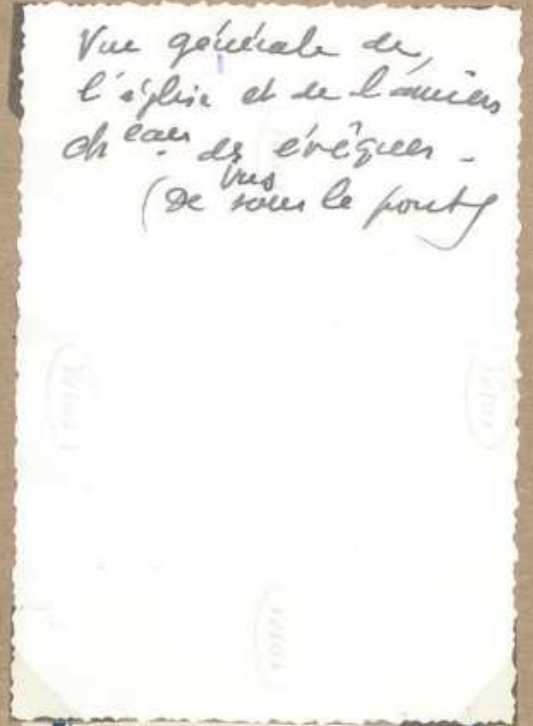 Vue générale de
l'église et de l'ancien
ch.eau des évêques -
vus
(de sous le pont)
Velox
Velox
Velox